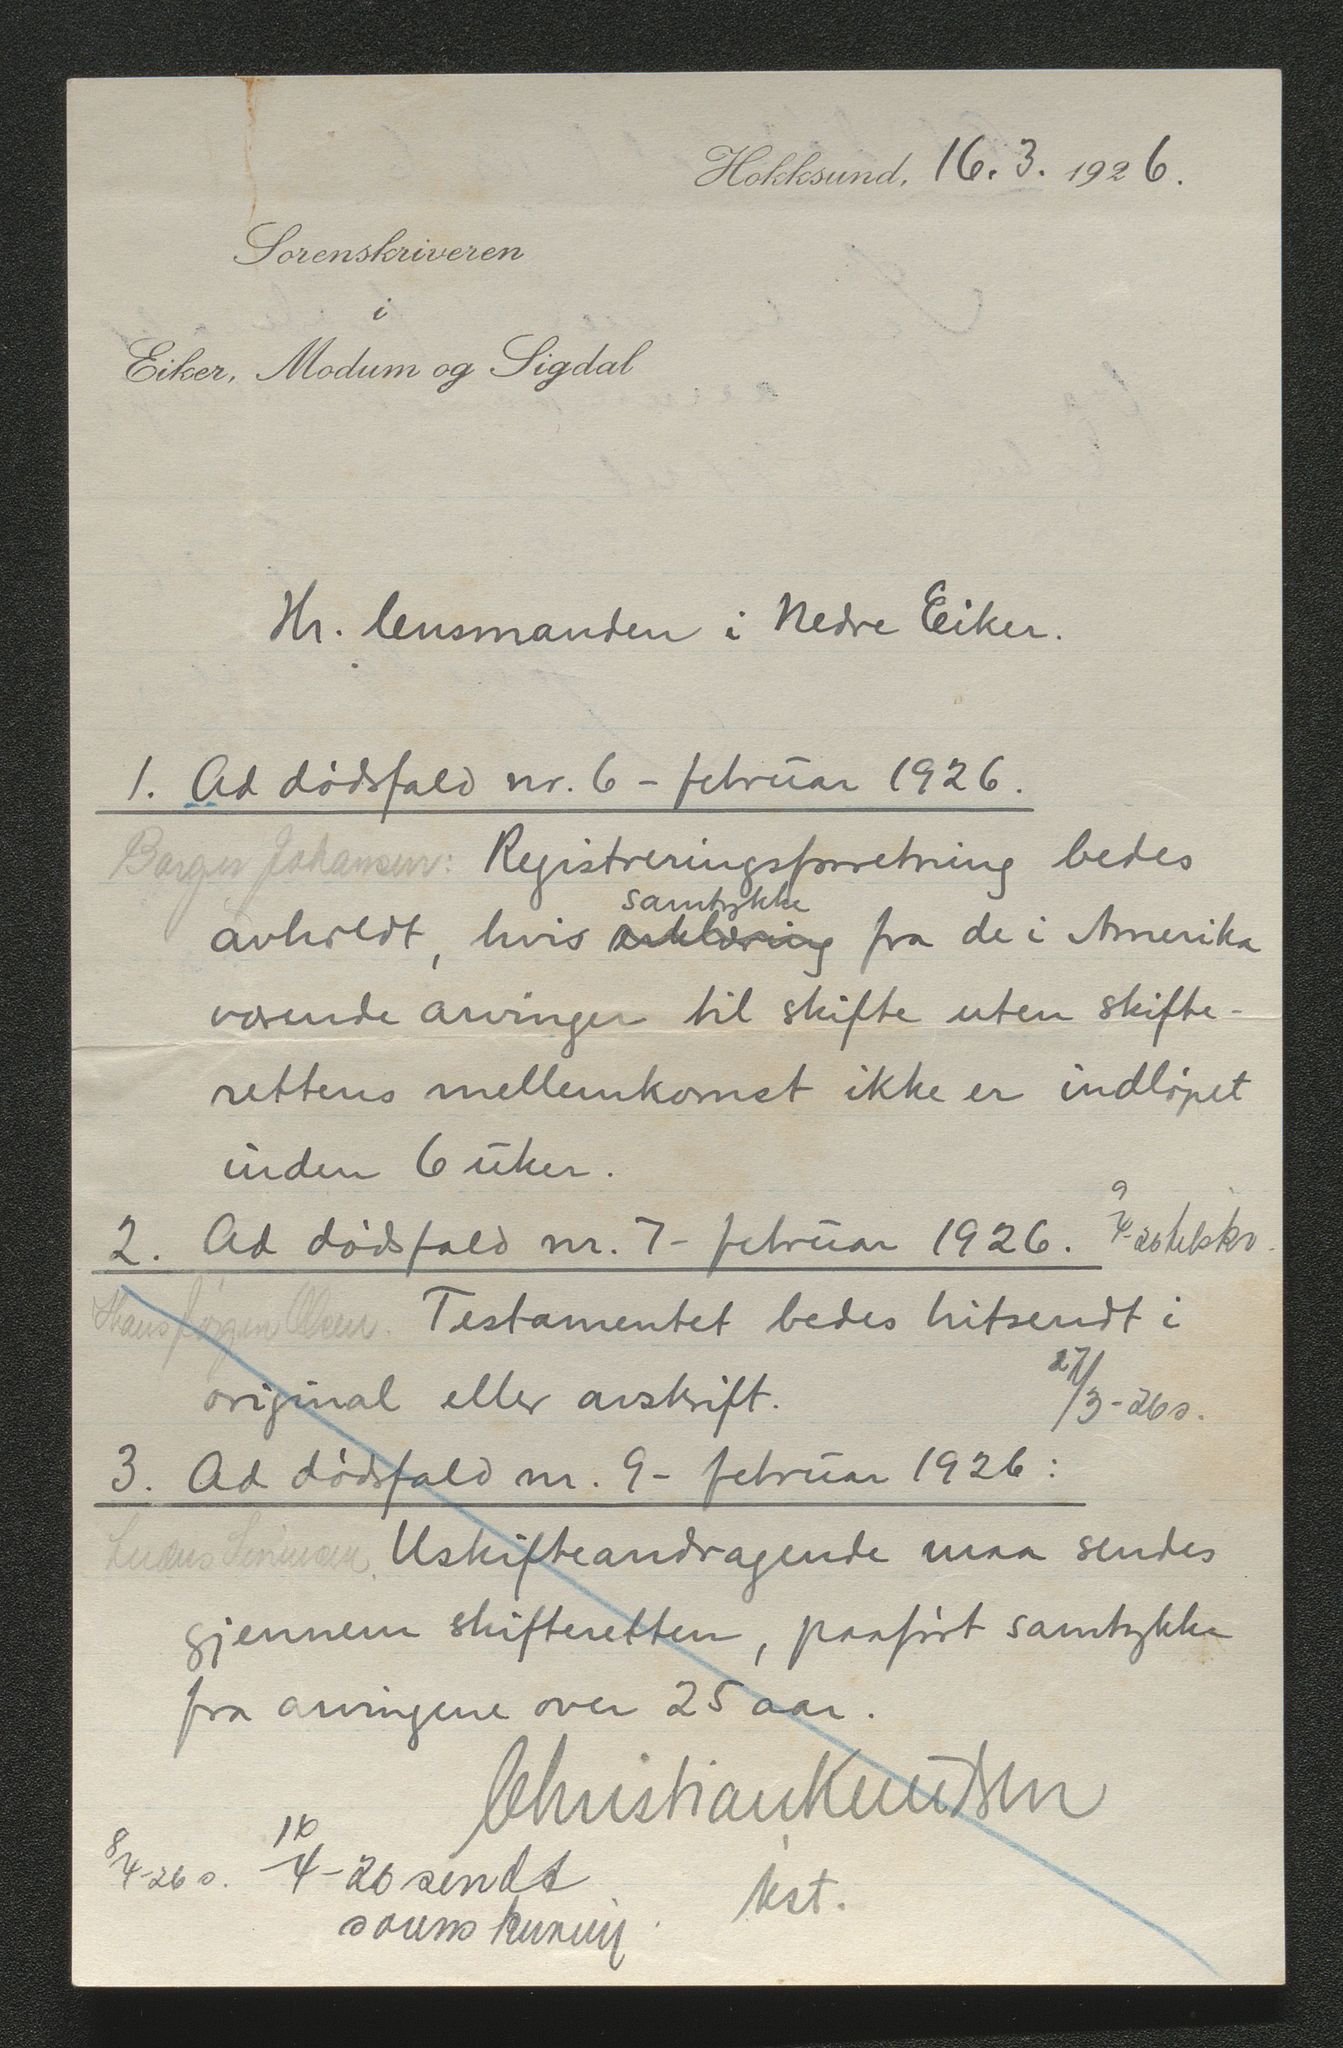 Hokksund, 16. 3. 1926.
Sorenskriveren
i
Eiker, Modum og Sigdal
Hr. lensmanden i Nedre Eiker.
1. Ad dødsfald nr. 6 - februar 1926.
Borger Johansen: Registreringsforretning bedes
samtykke
avholdt, hvis erklæring fra de i Amerika
værende arvinger til skifte uten skifte-
rettens mellemkomst ikke er indløpet
inden 6 uker.
2. Ad dødsfald nr. 7 - februar 1926.
9/4-26
Hans Jørgen Olsen. Testamentet bedes hitsendt i
original eller avskrift.
27/3-26 s.
3. Ad dødsfald nr. 9 - februar 1926:
Uskifteandragende maa sendes
gjennem skifteretten, paaført samtykke
fra arvingene over 25 aar.
Christian Knudsen
kst.
8/4-26 s.
16/4-26 sendt